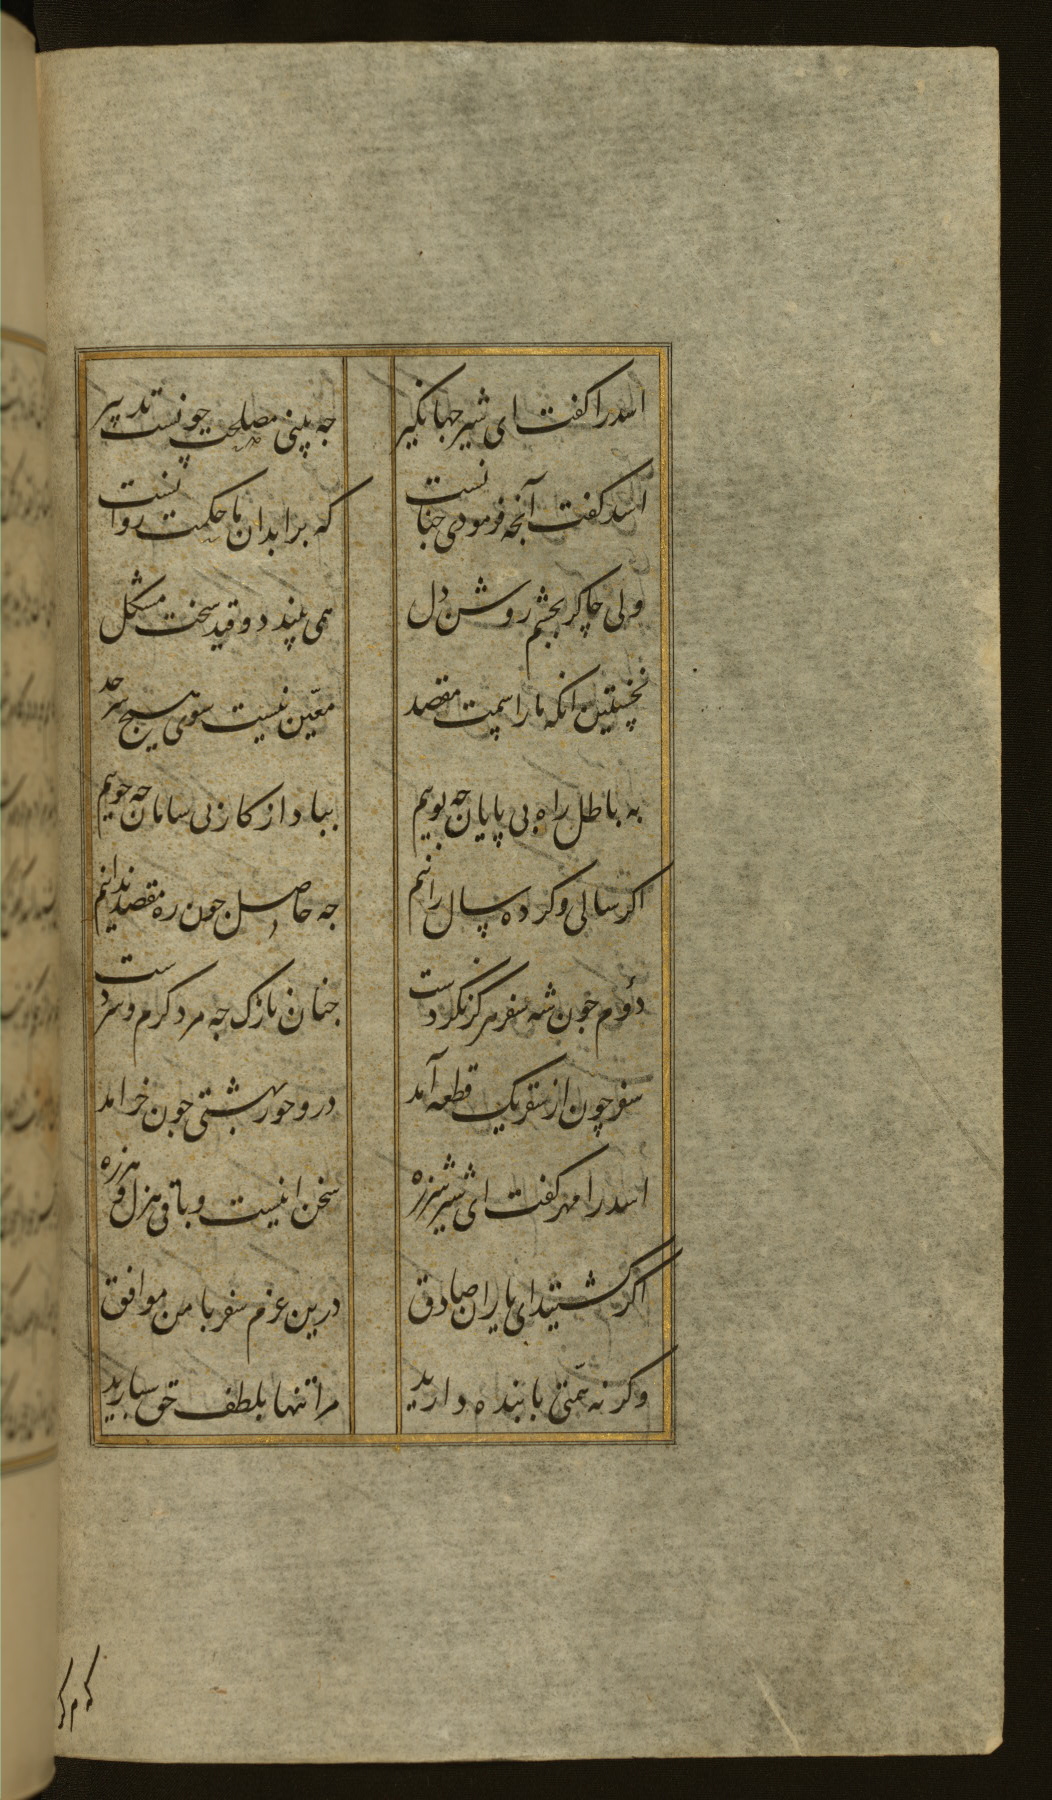 اسد را کفت ای شیر جهانکیر
جه بینی مصلحت چونست تدبیر
اسد کفت آنجه فرمودی جنانست
که برابدان با حکمت روانست
ولی چاکر بجشم روشن دل
همی بیند دو قید سخت مشکل
نخستین انکه ما را سمت مقصد
معیّن نیست سوی هیچ سرحد
به باطل راه بی پایان جه پوییم
ببا داز کار بی سامان جه جوییم
اکر سالی وکر ده سال رانیم
جه حاصل جون ره مقصد ندانیم
دوم جون شه سفر هرکز نکردست
جنان نازک جه مرد کرم و سردست
سفر چون از سقر یک قطعه آمد
درو حور بهشتی جون خرامد
اسد را مهر کفت ای شیر شرزه
سخن اینیست و باقی هزل و هرزه
اکر کشتید ای یاران صادق
درین عزم سفر با من موافق
وکر نه همّتی با بنده دارید
مرا تنها بلطف حق سپارید